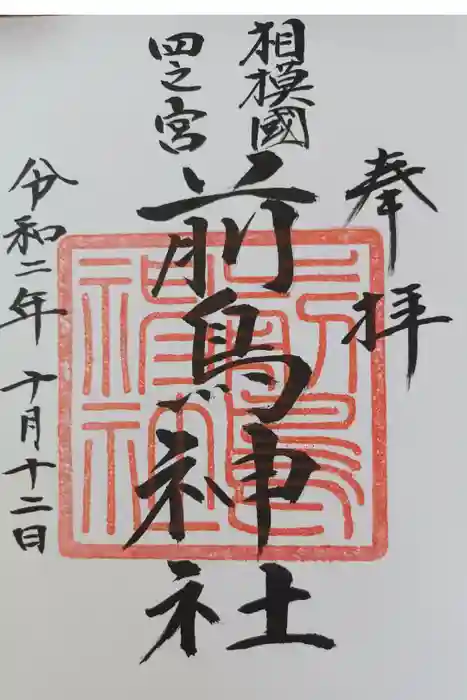 奉拝
相模國
四之宮
前鳥神社
令和二年 十月十二日
前鳥神社